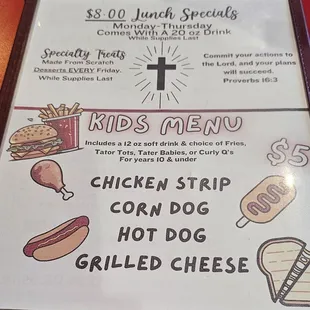 $8.00 Lunch Specials
Monday-Thursday
Comes With A 20 oz Drink
While Supplies Last
Specialty Treats
Made From Scratch
Desserts EVERY Friday.
While Supplies Last
Commit your actions to
the Lord, and your plans
will succeed.
Proverbs 16:3
KIDS MENU
$5
Includes a 12 oz soft drink & choice of Fries,
Tator Tots, Tater Babies, or Curly Q's
For years 10 & under
CHICKEN STRIP
CORN DOG
HOT DOG
GRILLED CHEESE